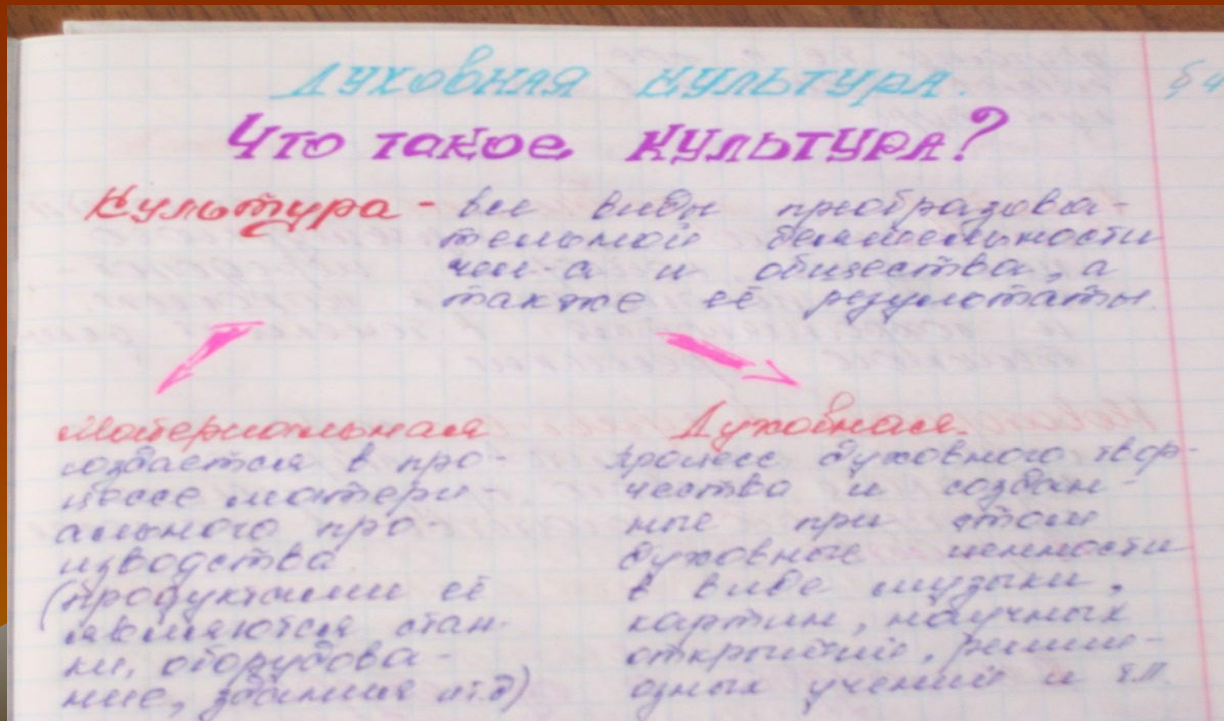 ДУХОВНАЯ КУЛЬТУРА.
§ 4
Что такое КУЛЬТУРА?
Культура - все виды преобразова-
тельной деятельности
чел-а и общества, а
также её результаты.
Материальная
создаётся в про-
цессе матери-
ального про-
изводства
(продуктами её
являются стан-
ки, оборудова-
ние, здания и т.д)
Духовная.
процесс духовного твор-
чества и создан-
ные при этом
духовные ценности
в виде музыки,
картин, научных
открытий, религи-
озных учений и т.п.